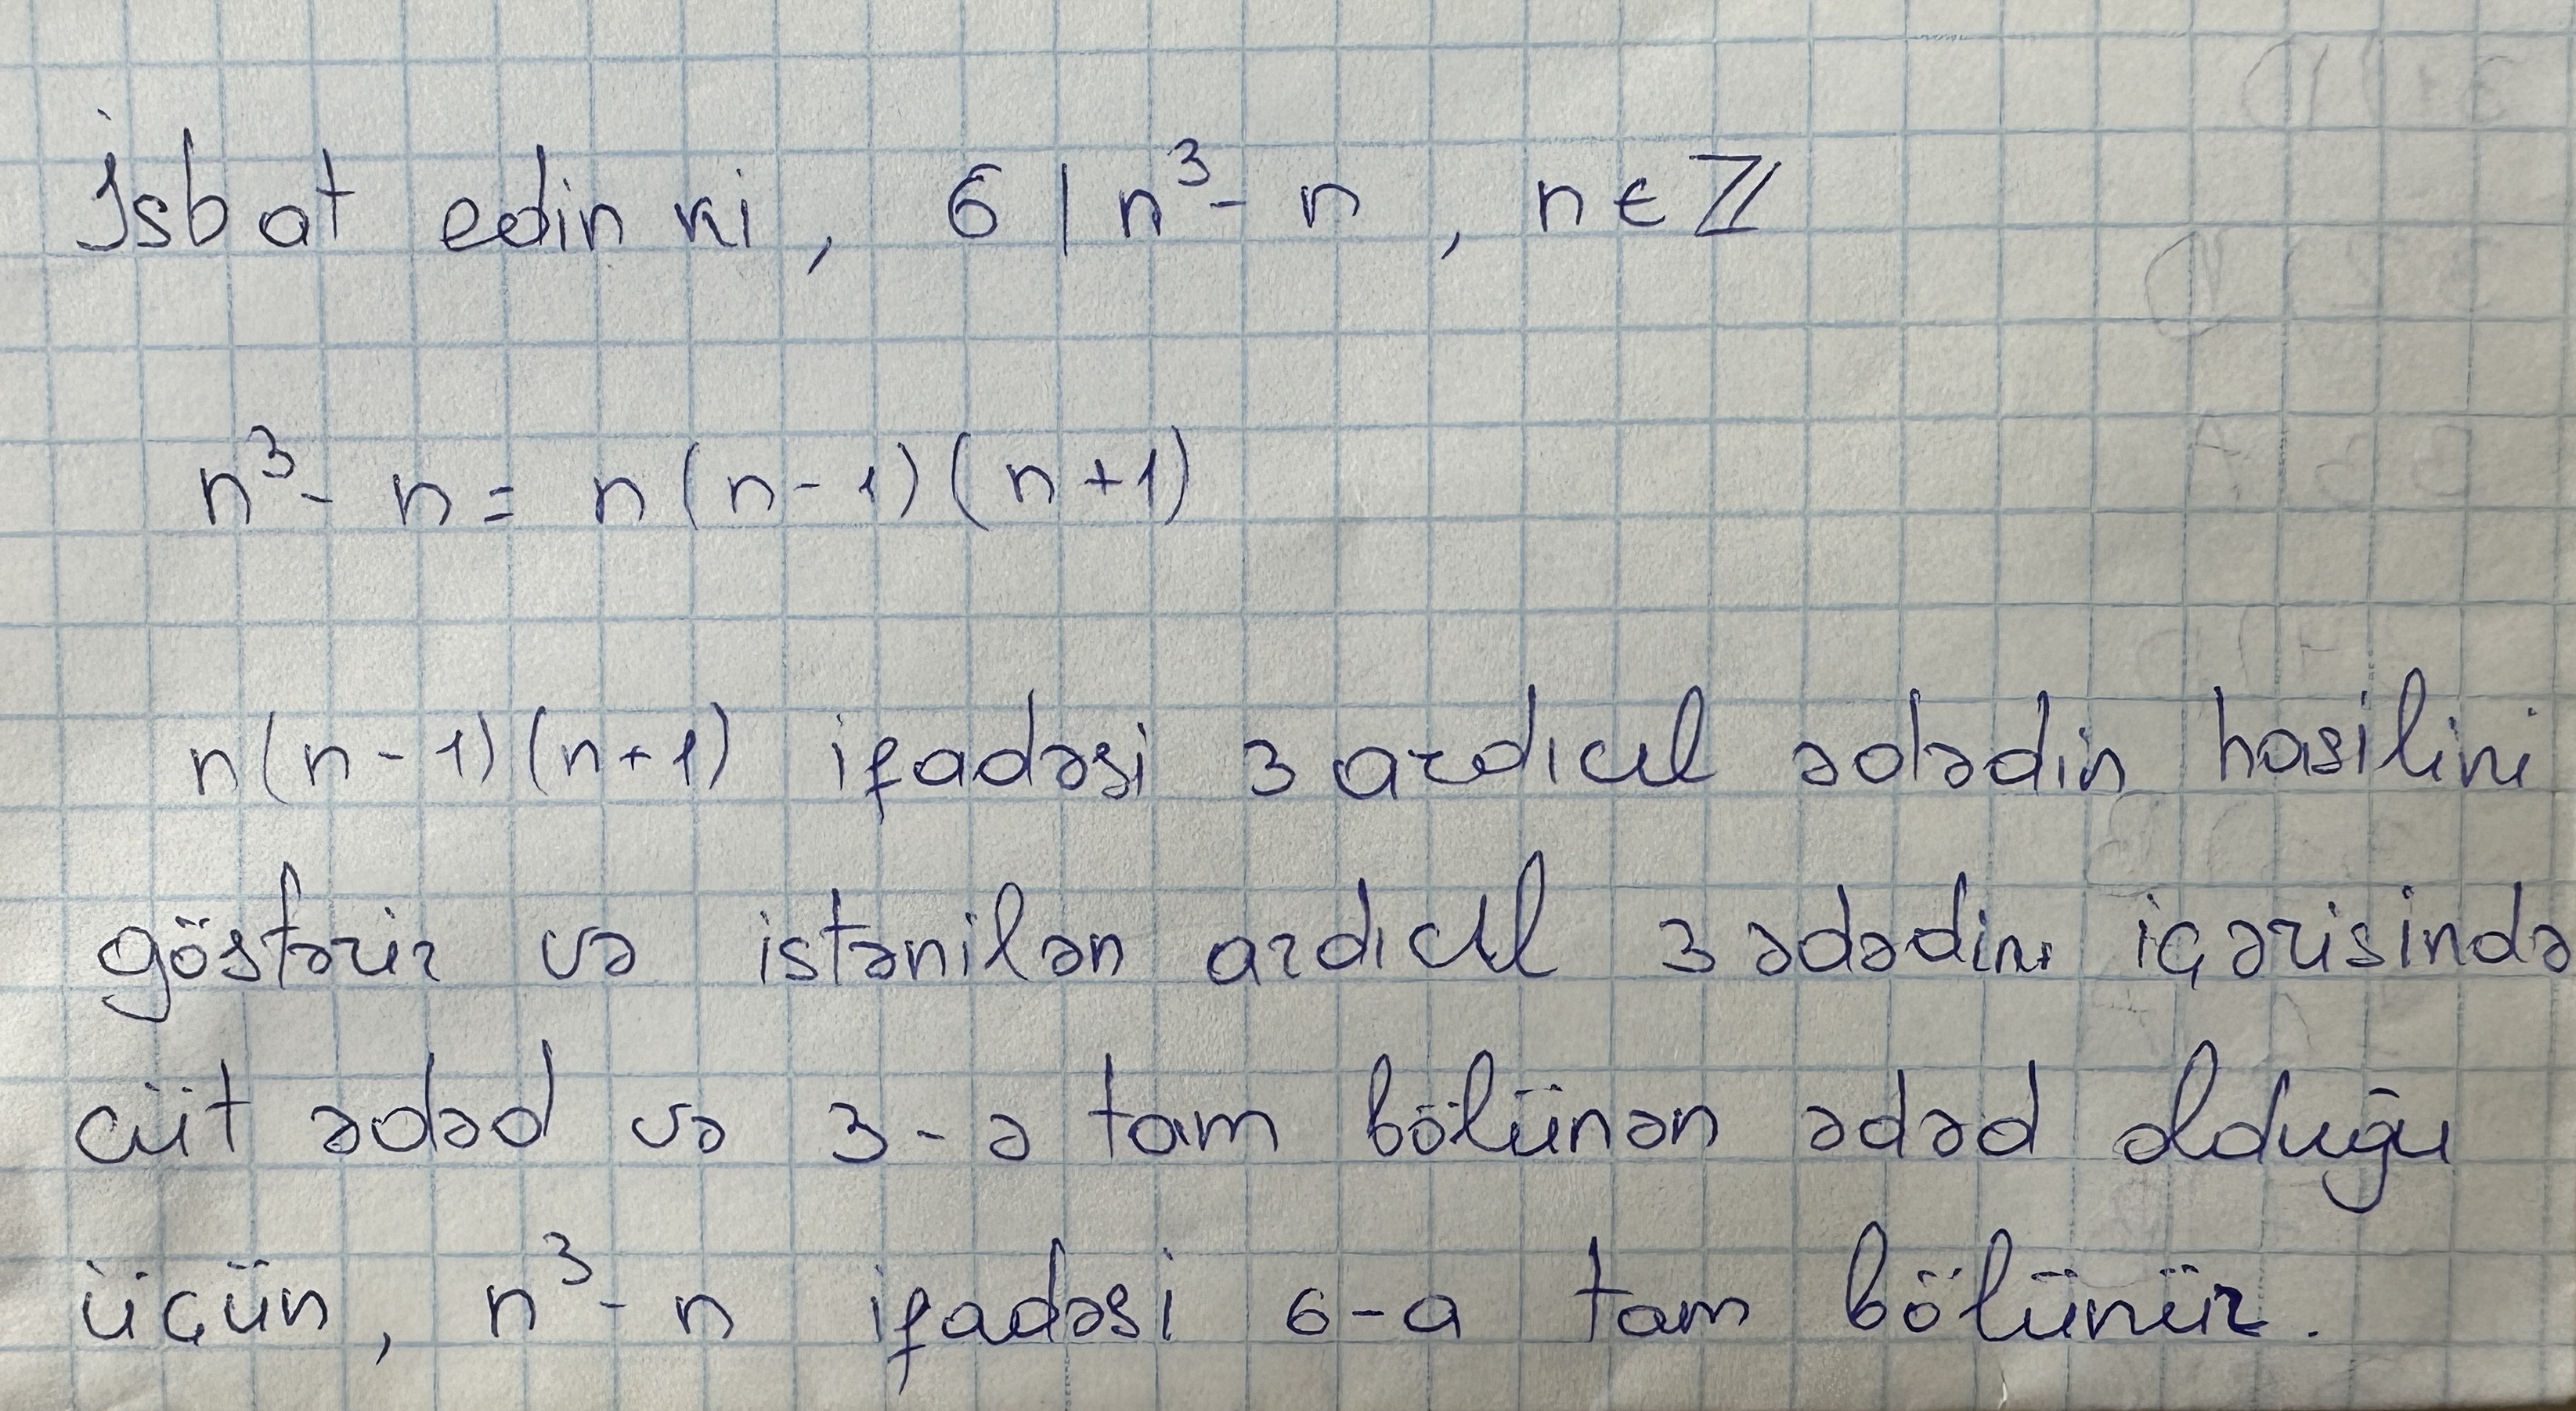 İsbat edin ki, 6 | n³- n , n ∈ ℤ
n³- n = n(n-1)(n+1)
n(n-1)(n+1) ifadəsi 3 ardıcıl ədədin hasilini
göstərir və istənilən ardıcıl 3 ədədin içərisində
cüt ədəd və 3-ə tam bölünən ədəd olduğu
üçün, n³- n ifadəsi 6-a tam bölünür.